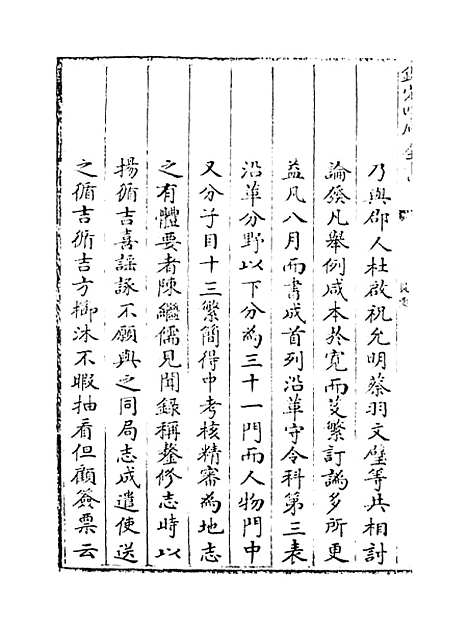 乃與郡人杜啟祝允明蔡羽文璧等共相討
論發凡舉例咸本於寛而芟繁訂譌多所更
益凡八月而書成首列沿革守令科第三表
沿革分野以下分為三十一門而人物門中
又分子目十三繁簡得中考核精審為地志
之有體要者陳繼儒見聞録稱鏊修志時以
楊循吉喜謡諑不願與之同局志成遣使送
之循吉循吉方櫛沐不暇抽看但顧簽票云